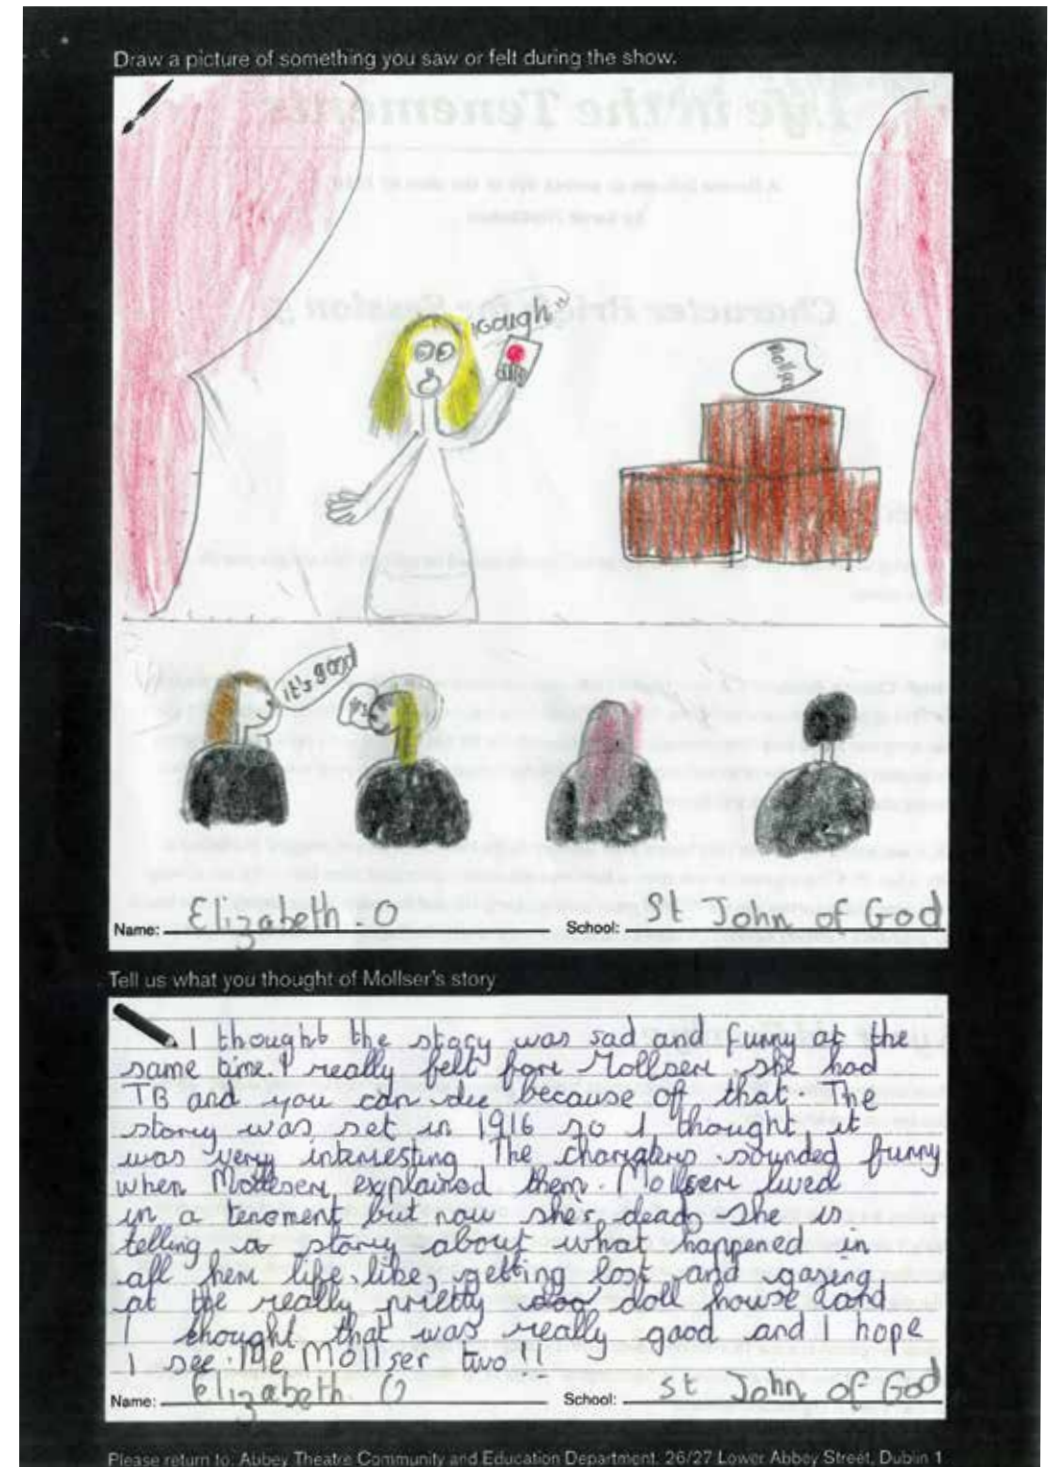 Draw a picture of something you saw or felt during the show.
Life in the Tenements
Character
"cough"
Mollser
it's good
Name: Elizabeth . O School: St John of God
Tell us what you thought of Mollser's story
I thought the story was sad and funny at the
same time. I really felt for Mollser she had
TB and you can die because off that. The
story was set in 1916 so I thought it
was very interesting. The charaters sounded funny
when Mollser explained them. Mollser lived
in a tenement but now shes dead. She is
telling a story about what happened in
all her life, like, getting lost and gazing
at the really pretty doll house and
I thought that was really good and I hope
I see Me Mollser two!!
Name: Elizabeth O School: St John of God
Please return to: Abbey Theatre Community and Education Department, 26/27 Lower Abbey Street, Dublin 1